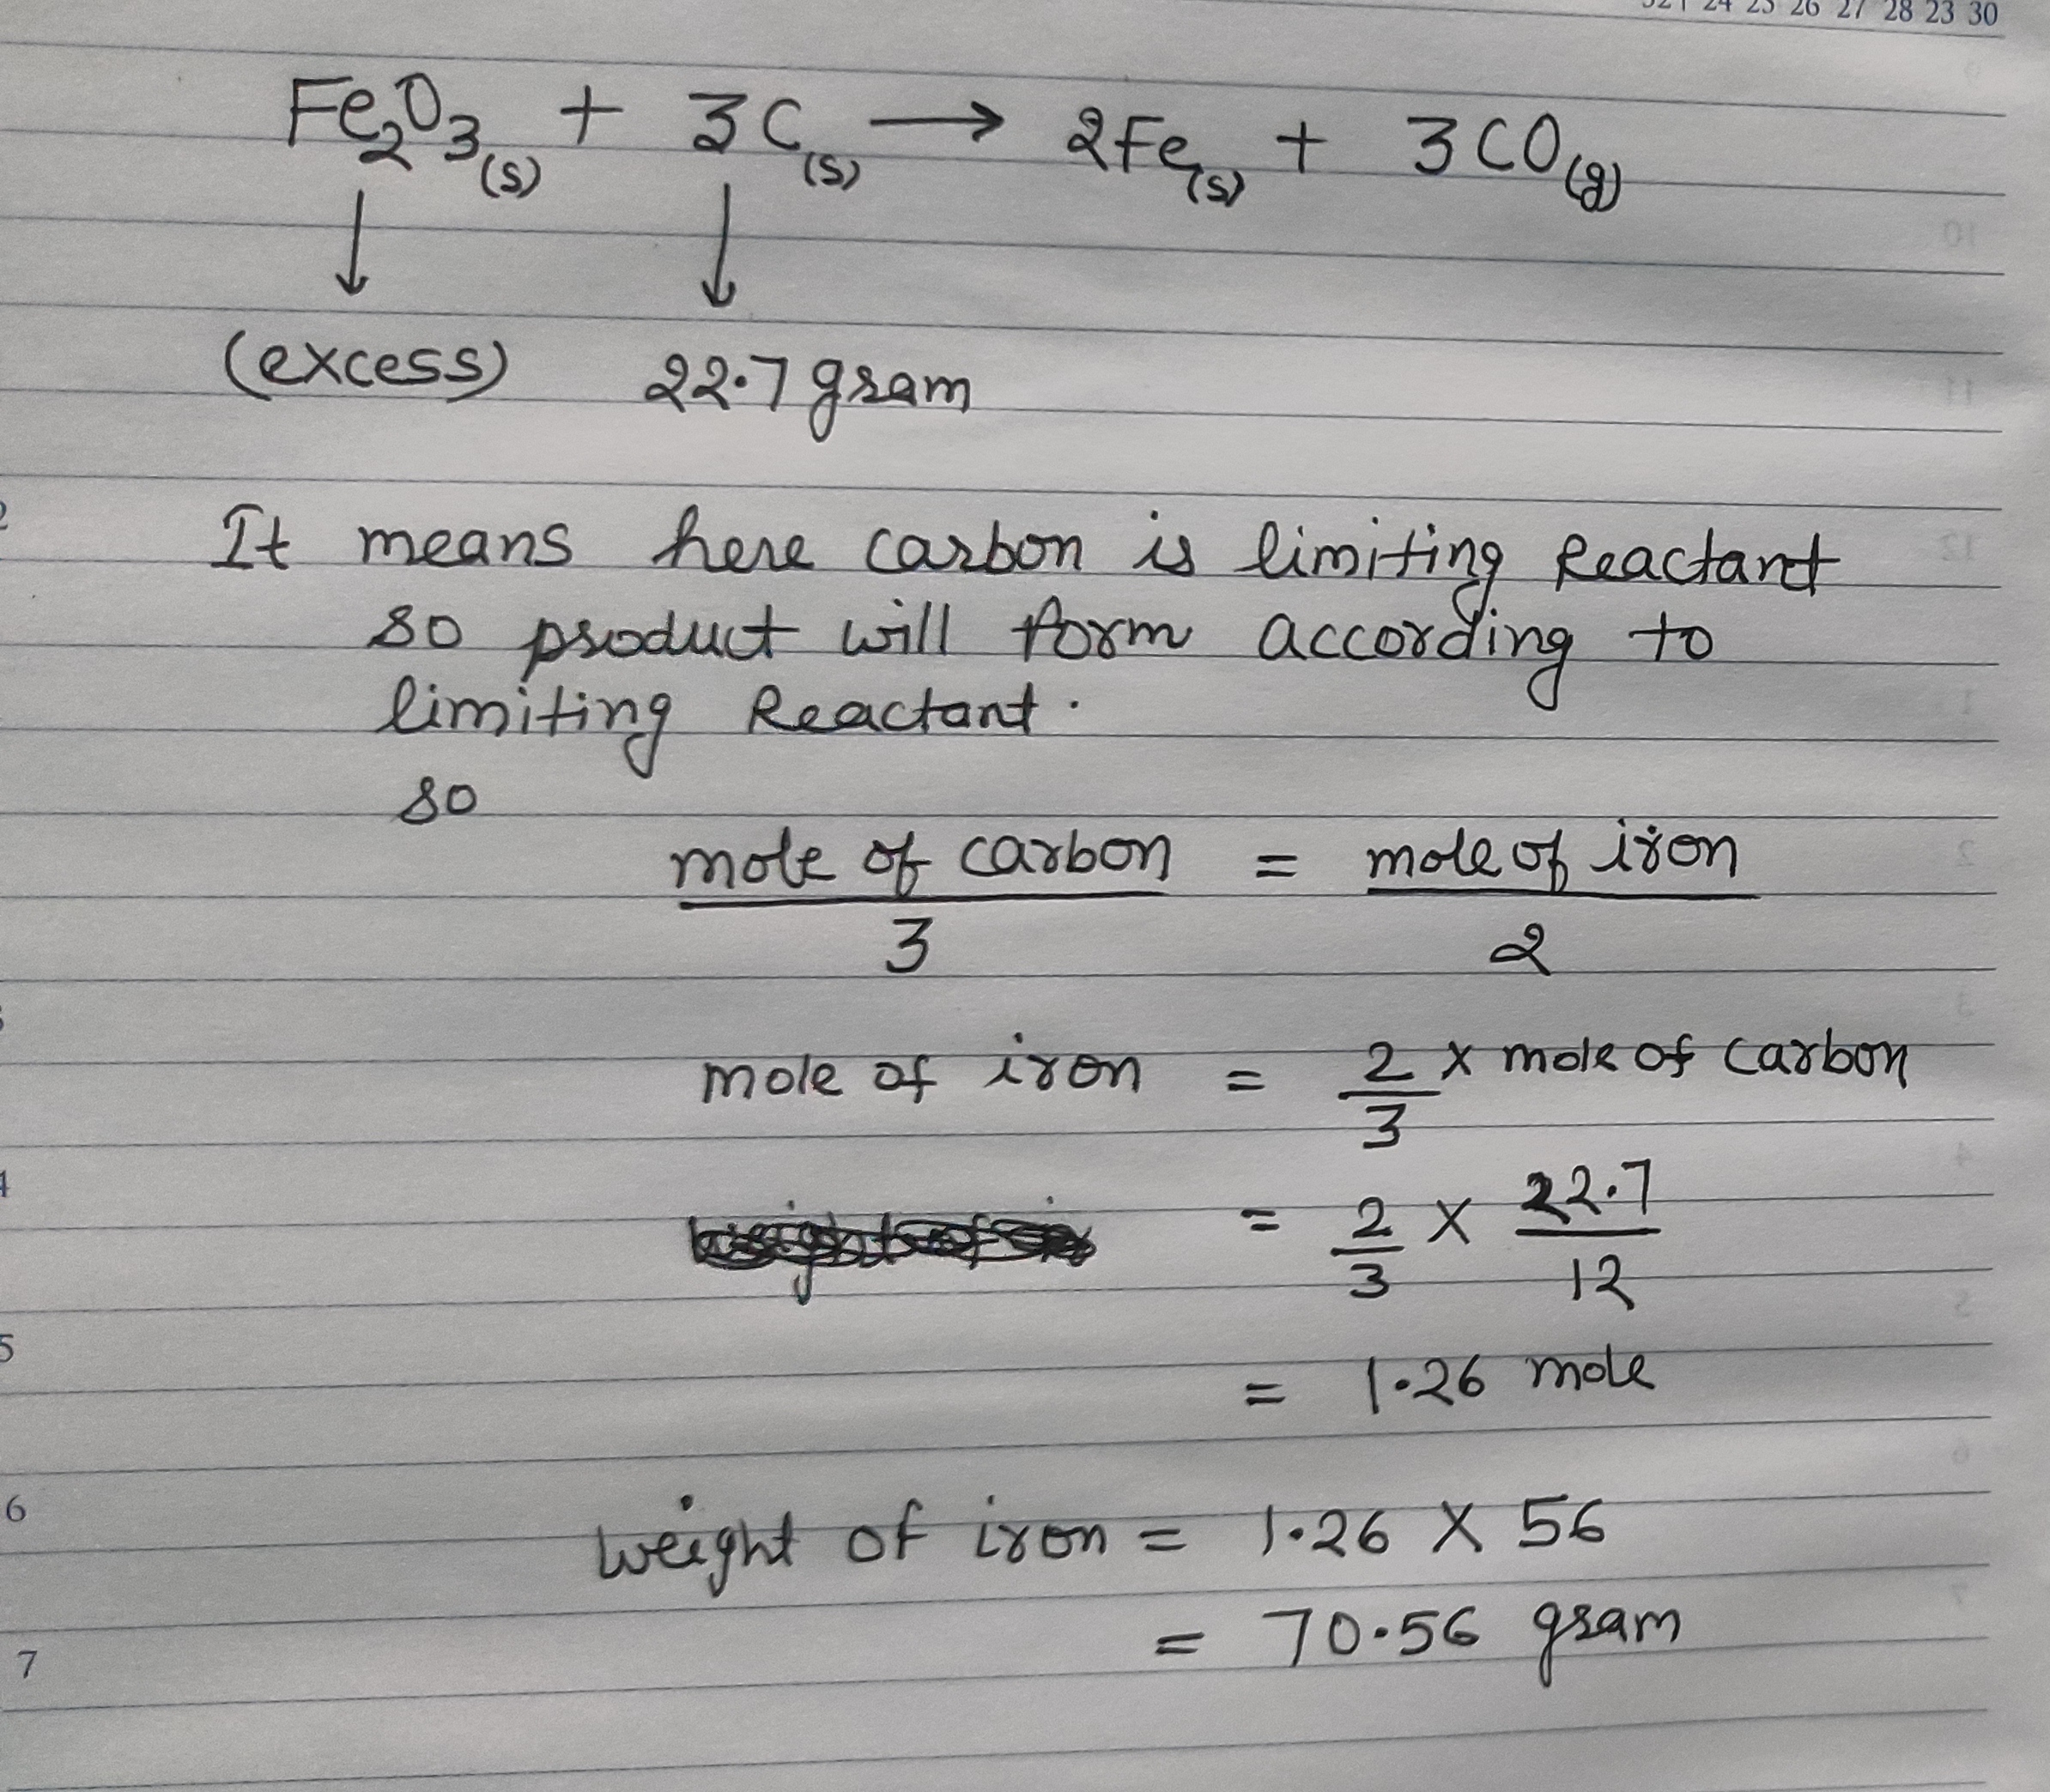 24 25 26 27 28 23 30
Fe₂O₃(s) + 3C(s) → 2Fe(s) + 3CO(g)
↓ ↓
(excess) 22.7 gram
It means here carbon is limiting Reactant
so product will form according to
limiting Reactant.
so
mole of carbon / 3 = mole of iron / 2
mole of iron = 2/3 × mole of carbon
= 2/3 × 22.7/12
= 1.26 mole
5
6
weight of iron = 1.26 × 56
= 70.56 gram
7